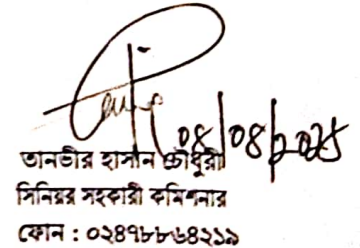 08/08/2025
তানভীর হাসান চৌধুরী
সিনিয়র সহকারী কমিশনার
ফোন : ০২৪৭৮৮৬৪২১৯